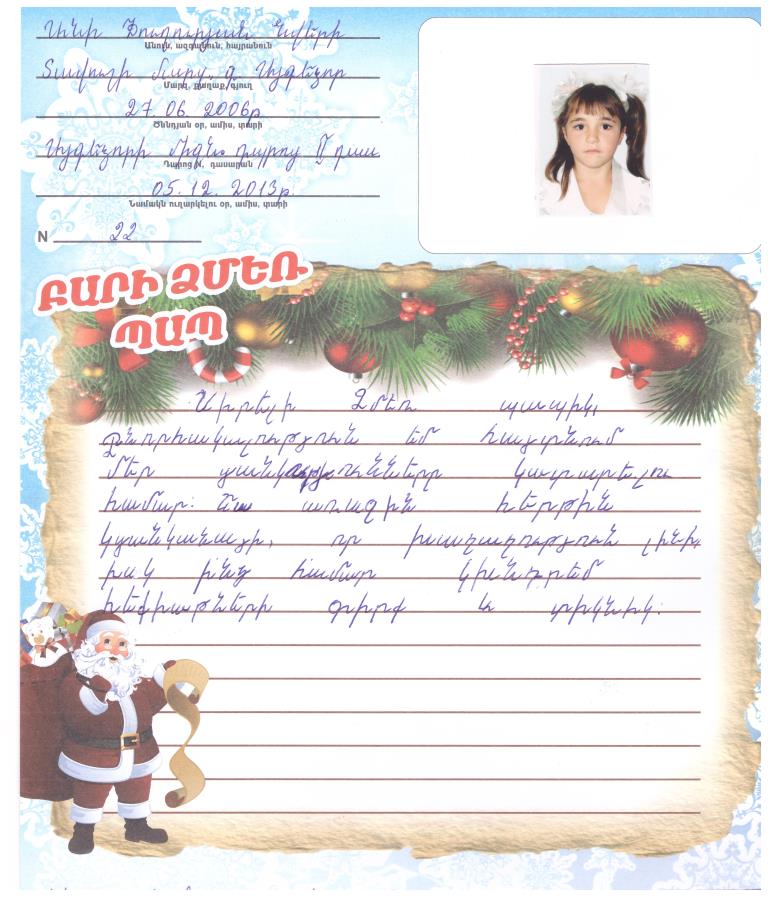 Անի Նվերի
Անուն, ազգանուն, հայրանուն
Տավուշի մարզ, գ. Այգեձոր
Մարզ, քաղաք, գյուղ
27. 06. 2006թ.
Ծննդյան օր, ամիս, տարի
Այգեձորի միջն. դպրոց դաս
Դպրոց N, դասարան
05. 12. 2013թ.
Նամակն ուղարկելու օր, ամիս, տարի
N 22
ԲԱՐԻ ՁՄԵՌ
ՊԱՊ
Սիրելի Ձմեռ պապիկ,
Շնորհակալություն եմ հայտնում
մեր ցանկությունները կատարելու
համար: Ես առաջին հերթին
կցանկանայի, որ խաղաղություն լինի,
իսկ ինձ համար կխնդրեմ
հեքիաթների գիրք և տիկնիկ: